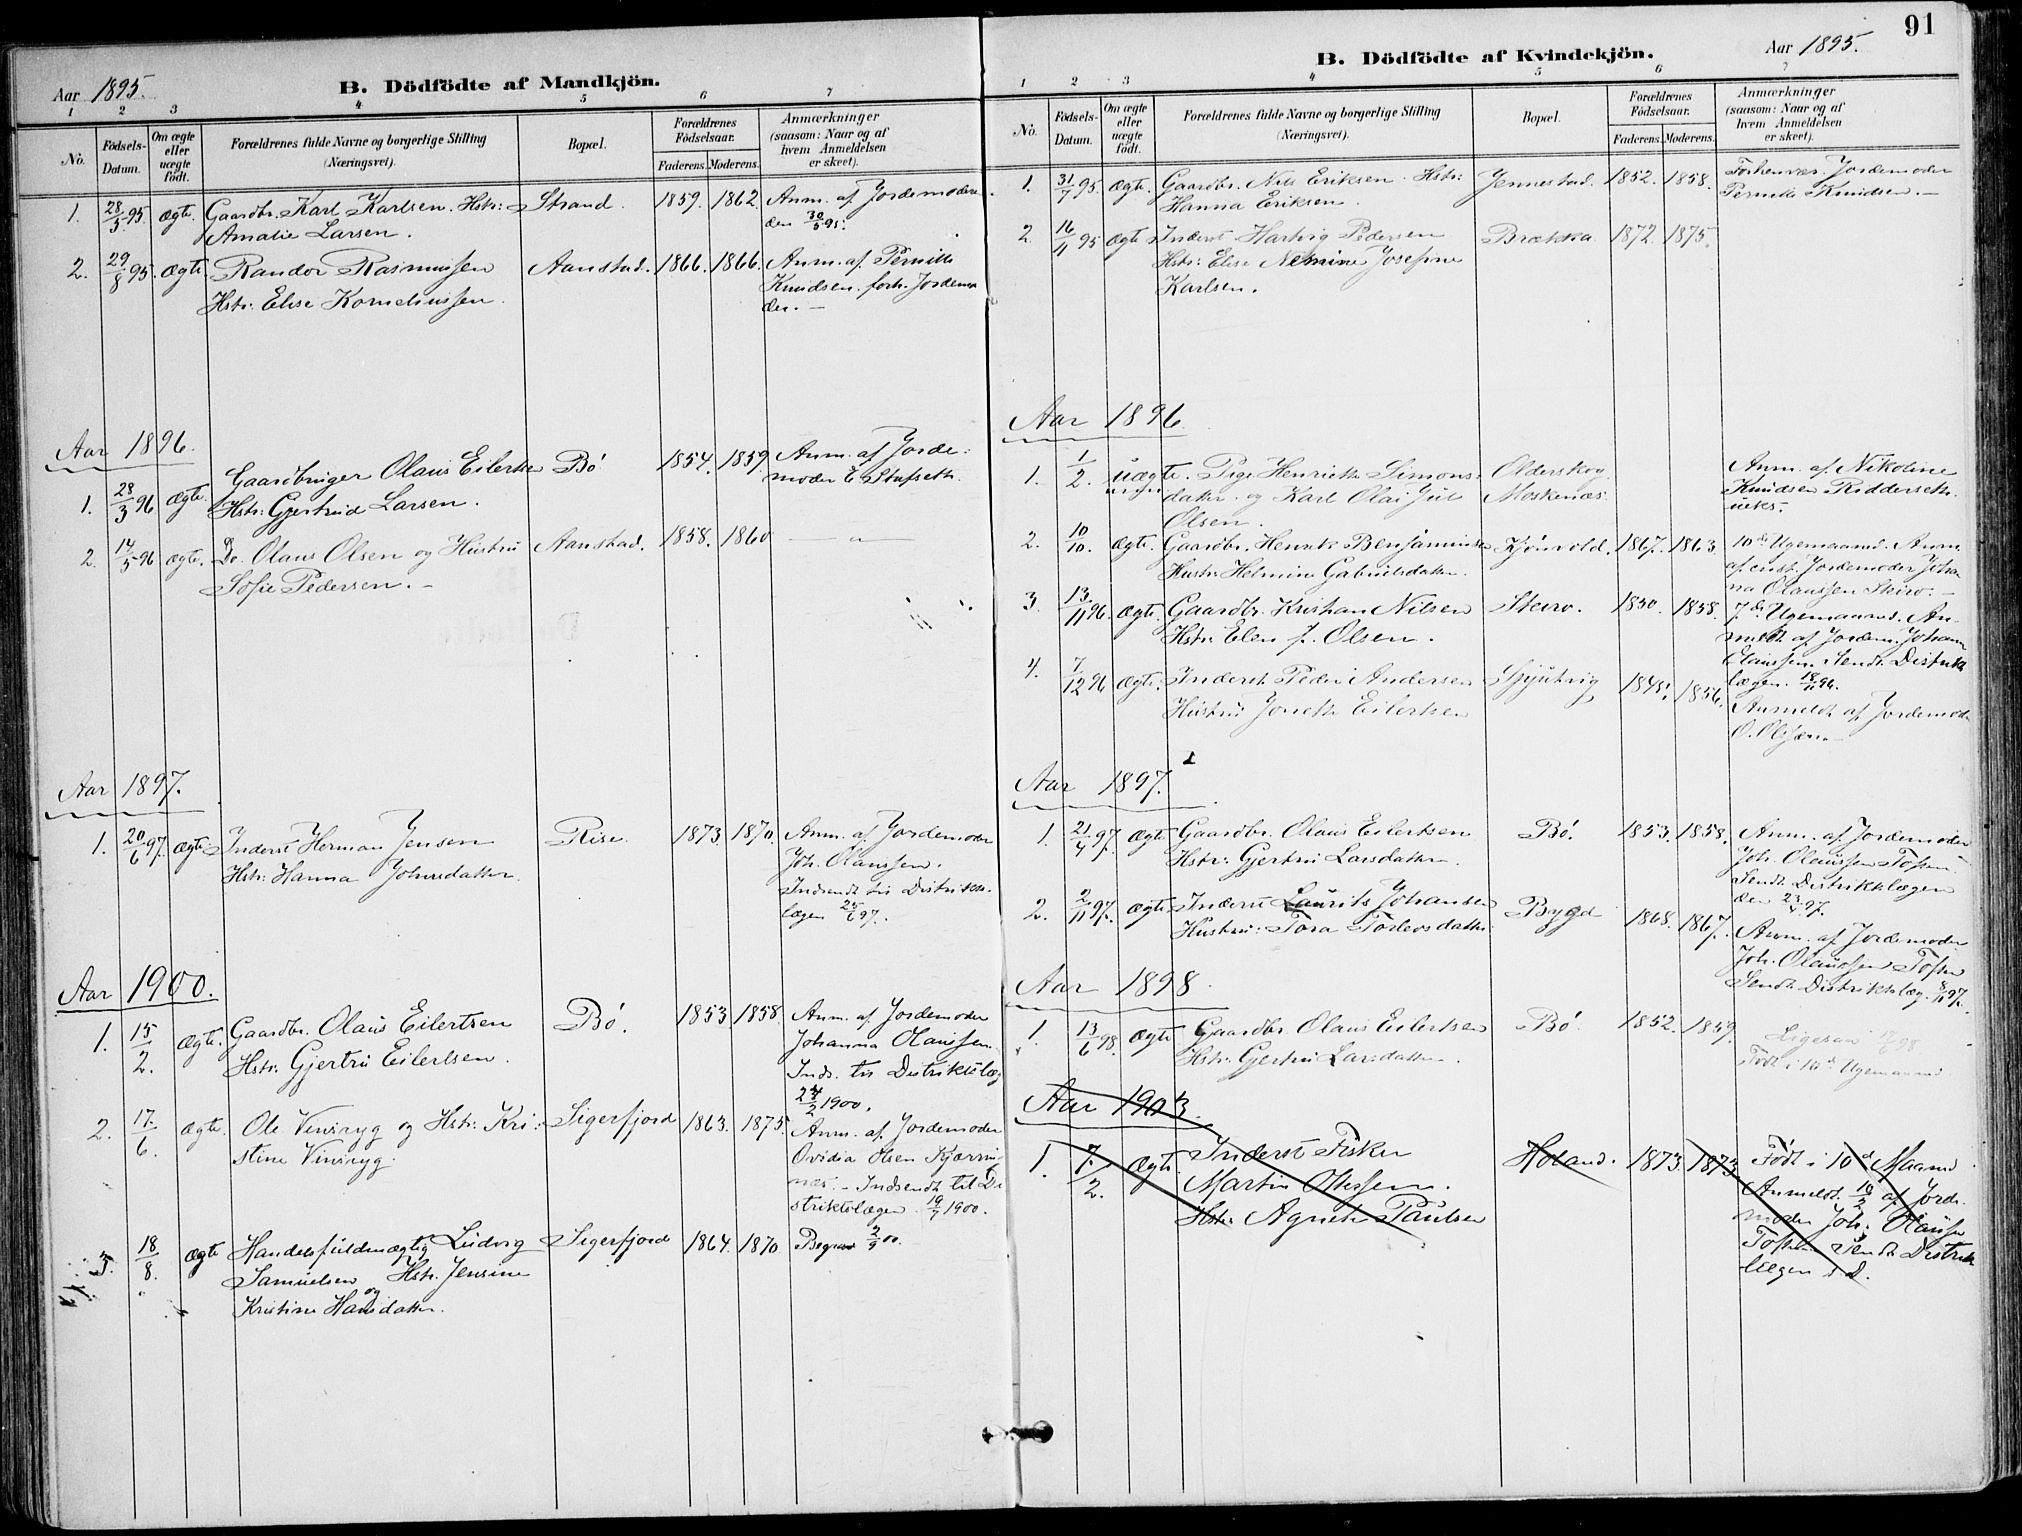 Aar 1895.
B. Dödfödte af Mandkjön.
1 2 3 4 5 6 7
No.
Födsels-Datum.
Om ægte eller uægte födt.
Forældrenes fulde Navne og borgerlige Stilling (Næringsvei).
Bopæl.
Forældrenes Födselsaar.
Faderens. Moderens.
Anmærkninger (saasom: Naar og af hvem Anmeldelsen er skeet).
1. 28/5 95. ægte. Gaardbr. Karl Karlsen. Hstr: Strand. 1859. 1862. Anm. af Jordemoderen
Amalie Larsen. den 30/5 95.
2. 29/8 95. ægte Randor Rasmussen Aanstad. 1866. 1866. Anm. af Pernille
Hstr: Elise Korneliussen. Knudsen forh. Jordemo
der. —
Aar 1896.
1. 28/3 96 ægte. Gaardbruger Olaus Eilertsen Bö 1854. 1859. Anm. af Jorde:
Hstr: Gjertrud Larsen. moder E.
2. 14/5 96 ægte. Do. Olaus Olsen og Hustru Aanstad. 1858. 1860 — " —
Sofie Pedersen. —
Aar 1897.
1. 20/6 97. ægte Inderst Herman Jensen Rise. 1873. 1870. Anm. af Jordemoder
Hstr: Hanna Johnsdatter. Joh. Olaussen.
Indsendt til Distrikts-
lægen 25/6 97.
Aar 1900.
1. 15/2. ægte. Gaardbr. Olaus Eilertsen Bö. 1853 1858. Anm. af Jordemoder
Hstr: Gjertru Eilertsen. Johanna Olaussen.
Inds. til Distriktslæg
24/2 1900.
2. 17/6. ægte. Ole Vinsryg og Hstr: Kri: Sigerfjord 1863. 1875. Anm. af Jordemoder
stine Vinsryg. Ovidia Olsen Kjörin-
næs. — Indsendt til Di
striktslægen 19/7 1900.
3. 18/8. ægte Handelsfuldmægtig Ludvig Sigerfjord 1864. 1870 Begravet 2/9 00.
Samuelsen og Hstr. Jensine
Kristine Hansdatter.
91
Aar 1895.
B. Dödfödte af Kvindekjön.
1 2 3 4 5 6 7
No.
Födsels-Datum.
Om ægte eller uægte födt.
Forældrenes fulde Navne og borgerlige Stilling (Næringsvei).
Bopæl.
Forældrenes Födselsaar.
Faderens. Moderens.
Anmærkninger (saasom: Naar og af hvem Anmeldelsen er skeet).
1. 31/7 95 ægte. Gaardbr. Nils Eriksen. Hstr: Jennestad. 1852. 1858. Forhenvær. Jordemoder
Hanna Eriksen. Pernille Knudsen. —
2. 16/11 95 ægte Inderst Hartvig Pedersen Brækka. 1872. 1875.
Hstr: Elise Nelmine Josefine
Karlsen.
Aar 1896
1. 1/2. uægte. Pige Henriette Simons: Olderskog Anm. af Nikoline
datter og Karl Olai Jul Moskenæs. Knudsen
Olsen.
2. 10/10. ægte. Gaardbr. Henrik Benjaminsen Kjörvold. 1867. 1863. 10de Ugemaaned. Anm.
Hustru Helmine Gabrielsdatter. af exist. Jordemoder Johan
na Olaussen Skiro. —
3. 13/11 96. ægte. Gaardbr. Kristian Nilsen Steiro. 1850. 1858. 7de Ugemaaned. An-
Hstr: Elen f. Olsen. meldt af Jordem. Johanna
Olaussen. Sendt Distrikts
lægen 18/11 96.
4. 7/12 96 ægte. Inderst Peder Andersen 1845. 1856. Anmeldt af Jordemoder
Hustru Jonette Eilertsen O. Olsen. —
Aar 1897.
1. 21/4 97. ægte Gaardbr. Olaus Eilertsen Bö. 1853. 1858. Anm. af Jordemoder
Hstr: Gjertru Larsdatter. Joh. Olaussen Toften.
Sendt Distriktslægen
den 23/4 97.
2. 2/11 97. ægte Inderst Laurits Johansen Bygd 1868. 1867. Anm. af Jordemoder
Hustru: Tora Torlevsdatter. Joh. Olaussen Toften
Sendt Distriktslæg. 8/11 97.
Aar 1898.
1. 13/6 98. ægte Gaardbr. Olaus Eilertsen Bö. 1852. 1859. Ligesaa
Hstr. Gjertru Larsdatter. Födt i 10de Ugemaaned
Aar 1903.
1. 7/2. ægte. Inderst Fisker Holand. 1873. 1873 Födt i 10d Maaned
Martin Ottessen. Anmeldt 10/2 af Jorde
Hstr: Agnete Paulsen moder Joh. Olaussen
Toften Sendt Distrikts
lægen s.d.